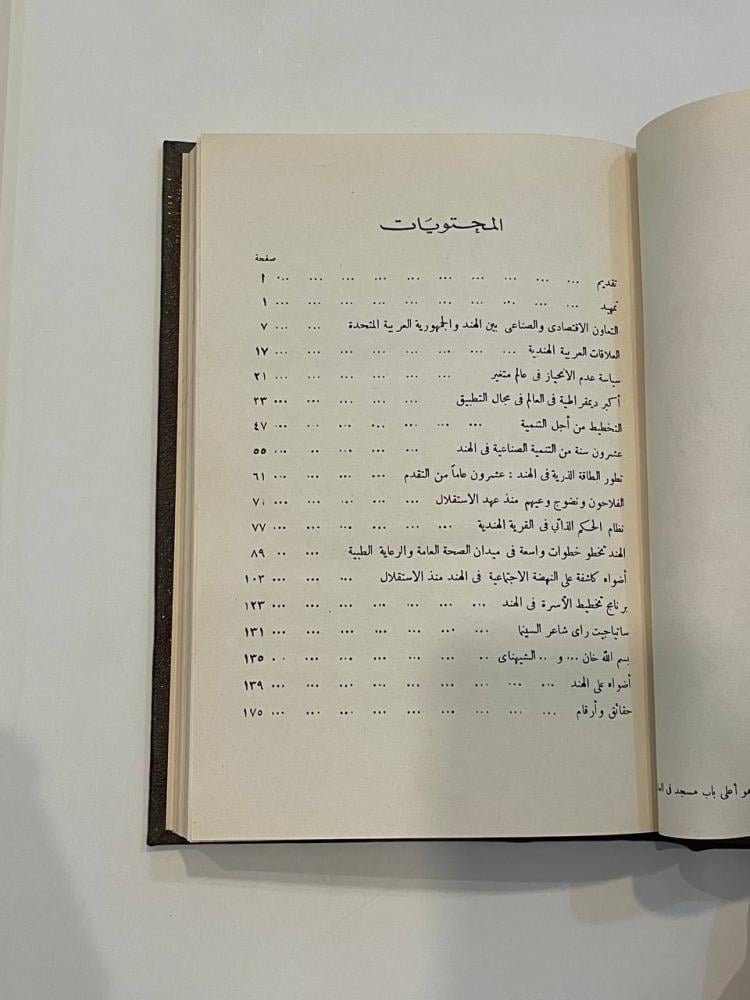 المحتويات
صفحة
تقديم ... ... ... ... ... ... ... ... ... ... ا
تمهيد ... ... ... ... ... ... ... ... ... ... ١
التعاون الاقتصادى والصناعى بين الهند والجمهورية العربية المتحدة ... ... ٧
العلاقات العربية الهندية ... ... ... ... ... ... ... ... ١٧
سياسة عدم الانحياز فى عالم متغير ... ... ... ... ... ... ٢١
أكبر ديمقراطية فى العالم فى مجال التطبيق ... ... ... ... ... ٣٣
التخطيط من أجل التنمية ... ... ... ... ... ... ... ٤٧
عشرون سنة من التنمية الصناعية فى الهند ... ... ... ... ... ٥٥
تطور الطاقة الذرية فى الهند : عشرون عاماً من التقدم ... ... ... ... ٦١
الفلاحون ونضوج وعيهم منذ عهد الاستقلال ... ... ... ... ... ٧١
نظام الحكم الذاتى فى القرية الهندية ... ... ... ... ... ... ٧٧
الهند تخطو خطوات واسعة فى ميدان الصحة العامة والرعاية الطبية ... ... ٨٩
أضواء كاشفة على النهضة الاجتماعية فى الهند منذ الاستقلال ... ... ... ١٠٣
برنامج تخطيط الأسرة فى الهند ... ... ... ... ... ... ... ١٢٣
ساتياجيت راى شاعر السينما ... ... ... ... ... ... ... ١٣١
بسم الله خان ... و .. الشيهناى ... ... ... ... ... ... ... ١٣٥
أضواء على الهند ... ... ... ... ... ... ... ... ... ١٣٩
حقائق وأرقام ... ... ... ... ... ... ... ... ... ١٧٥
هو أعلى باب مسجد فى